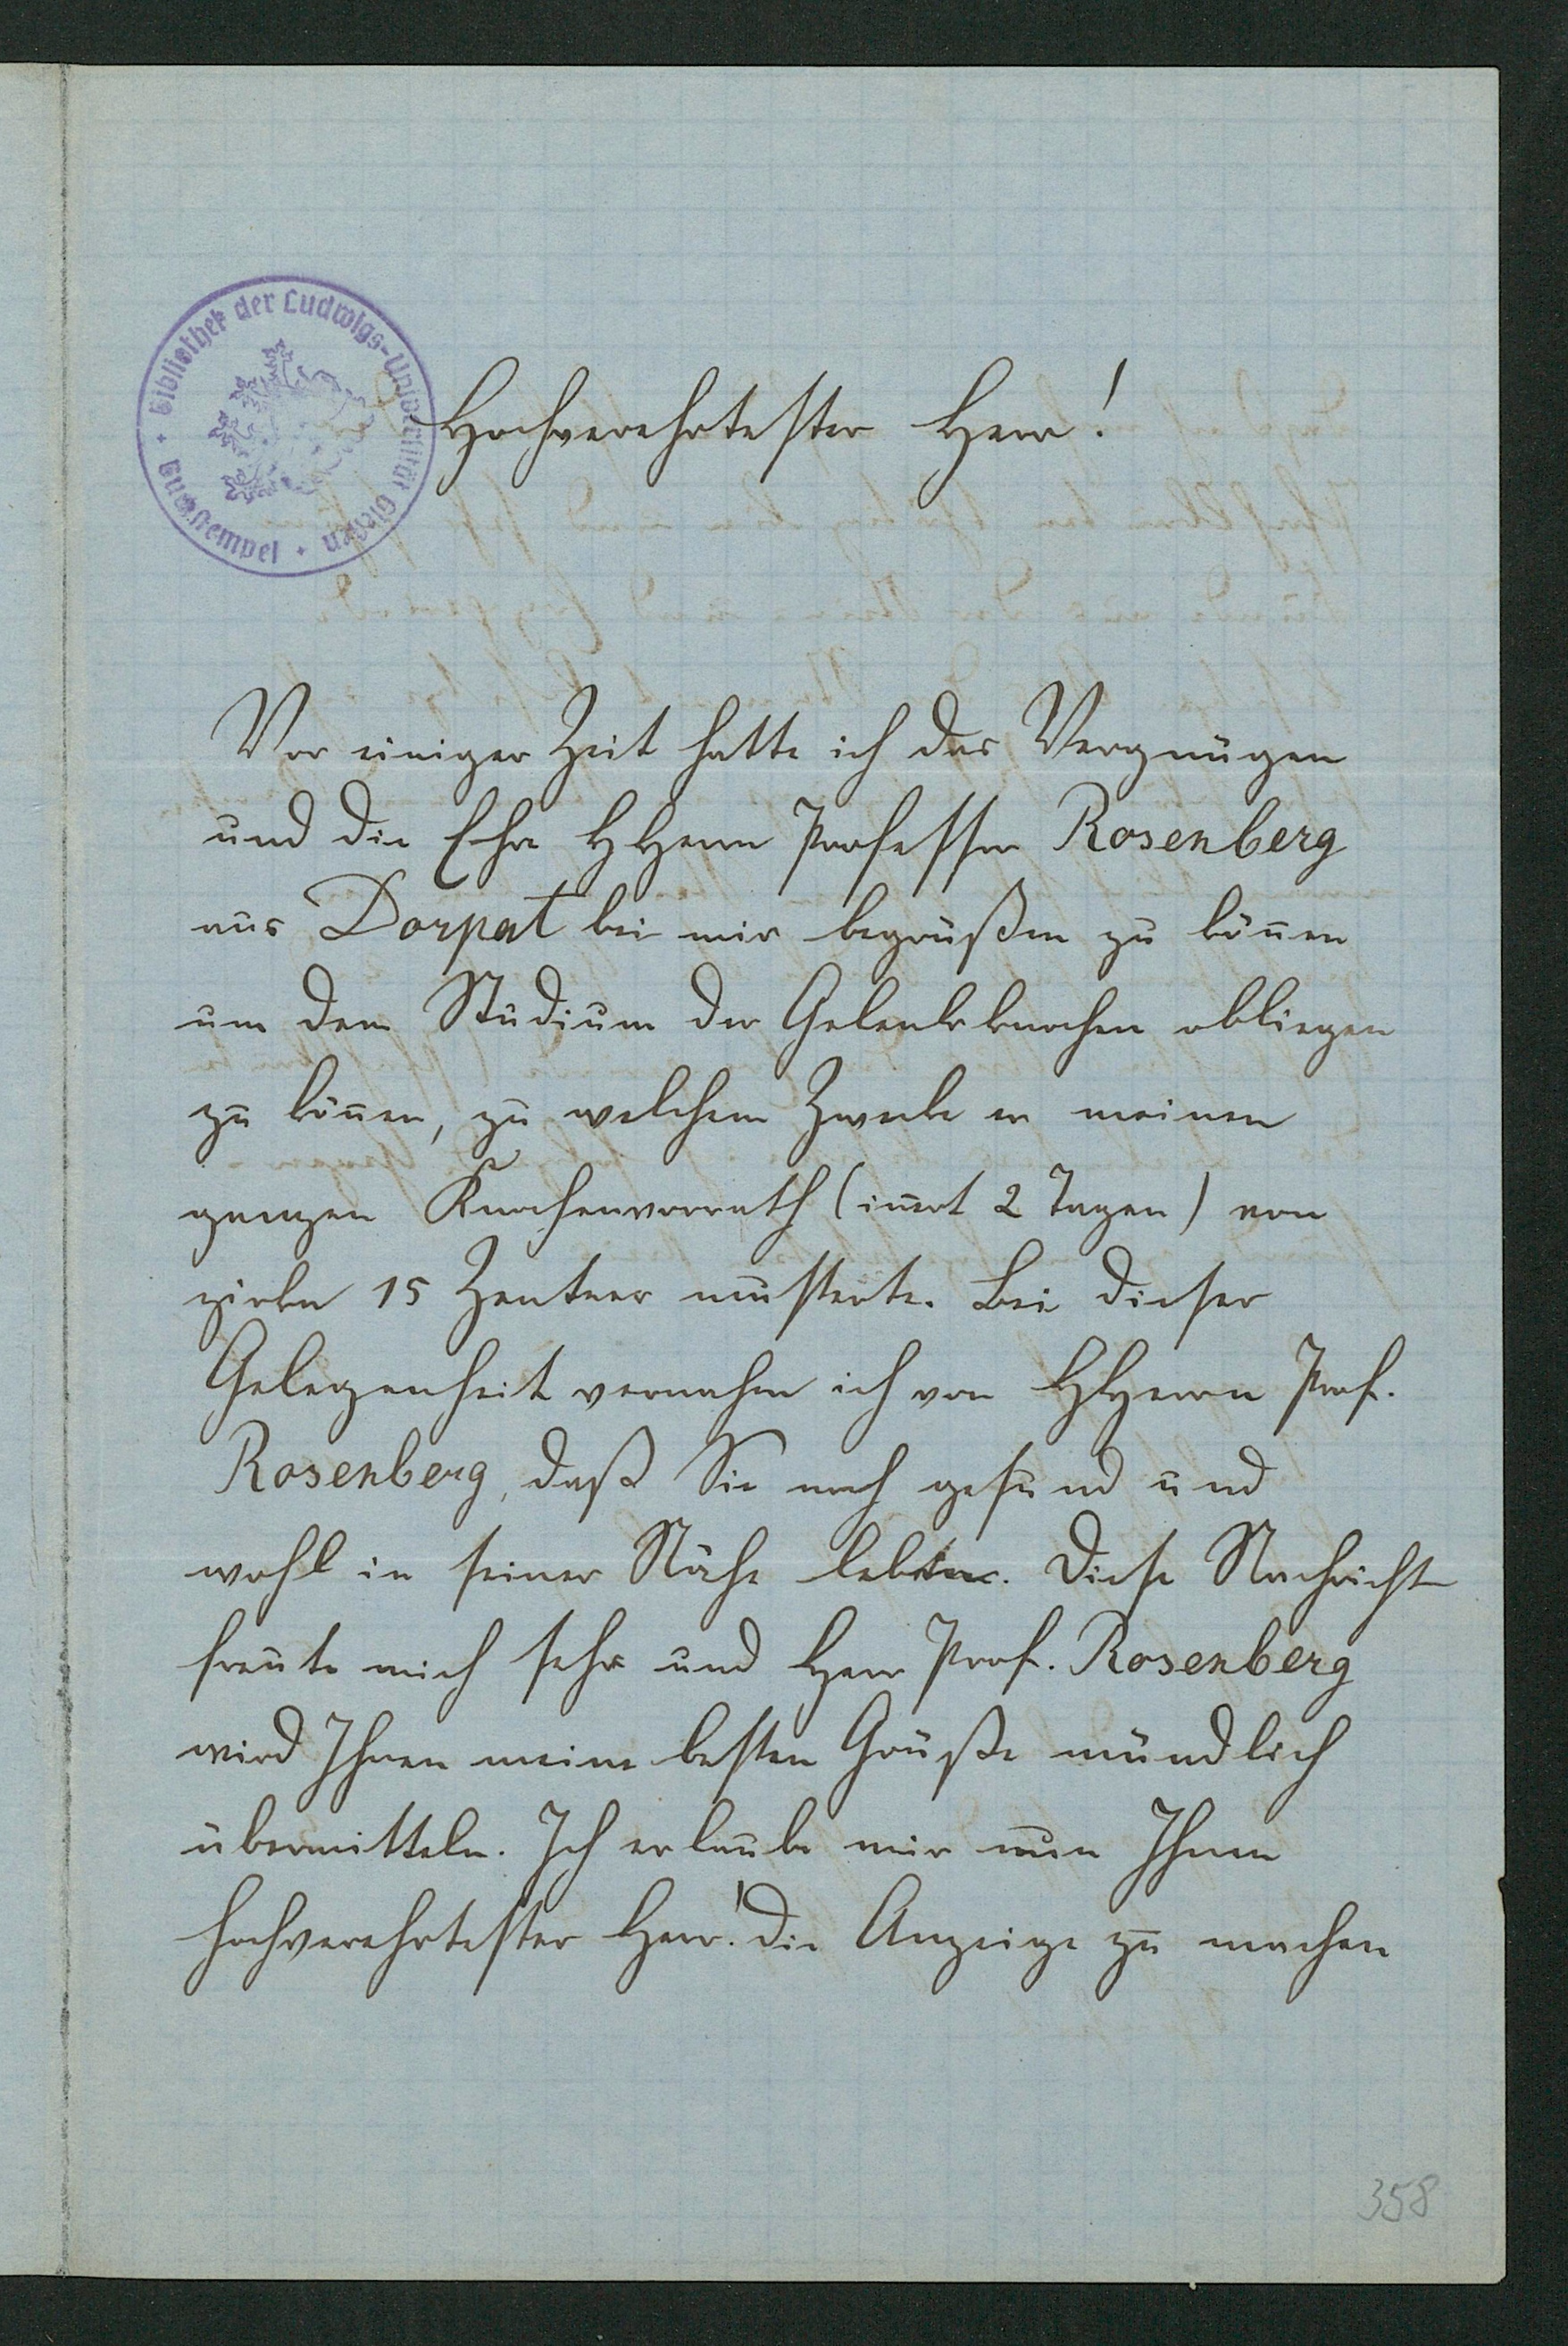 Bibliothek der Ludwigs-Universität Gießen
Buchstempel
Hochverehrtester Herr!
Vor einiger Zeit hatte ich das Vergnügen
und die Ehre HHerrn Professor Rosenberg
aus Dorpat bei mir begrüßen zu kön̄en
um dem Studium der Gelenkknochen obliegen
zu kön̄en, zu welchem Zwecke er meinen
ganzen Knochenvorrath (in̄ert 2 Tagen) von
zirka 15 Zentner musterte. Bei dieser
Gelegenheit vernahm ich von HHerrn Prof.
Rosenberg, daß Sie noch gesund und
wohl in seiner Nähe leben. Diese Nachricht
freute mich sehr und Herr Prof. Rosenberg
wird Ihnen meine besten Grüße mündlich
übermitteln. Ich erlaube mir nun Ihnen
hochverehrtester Herr! die Anzeige zu machen
358